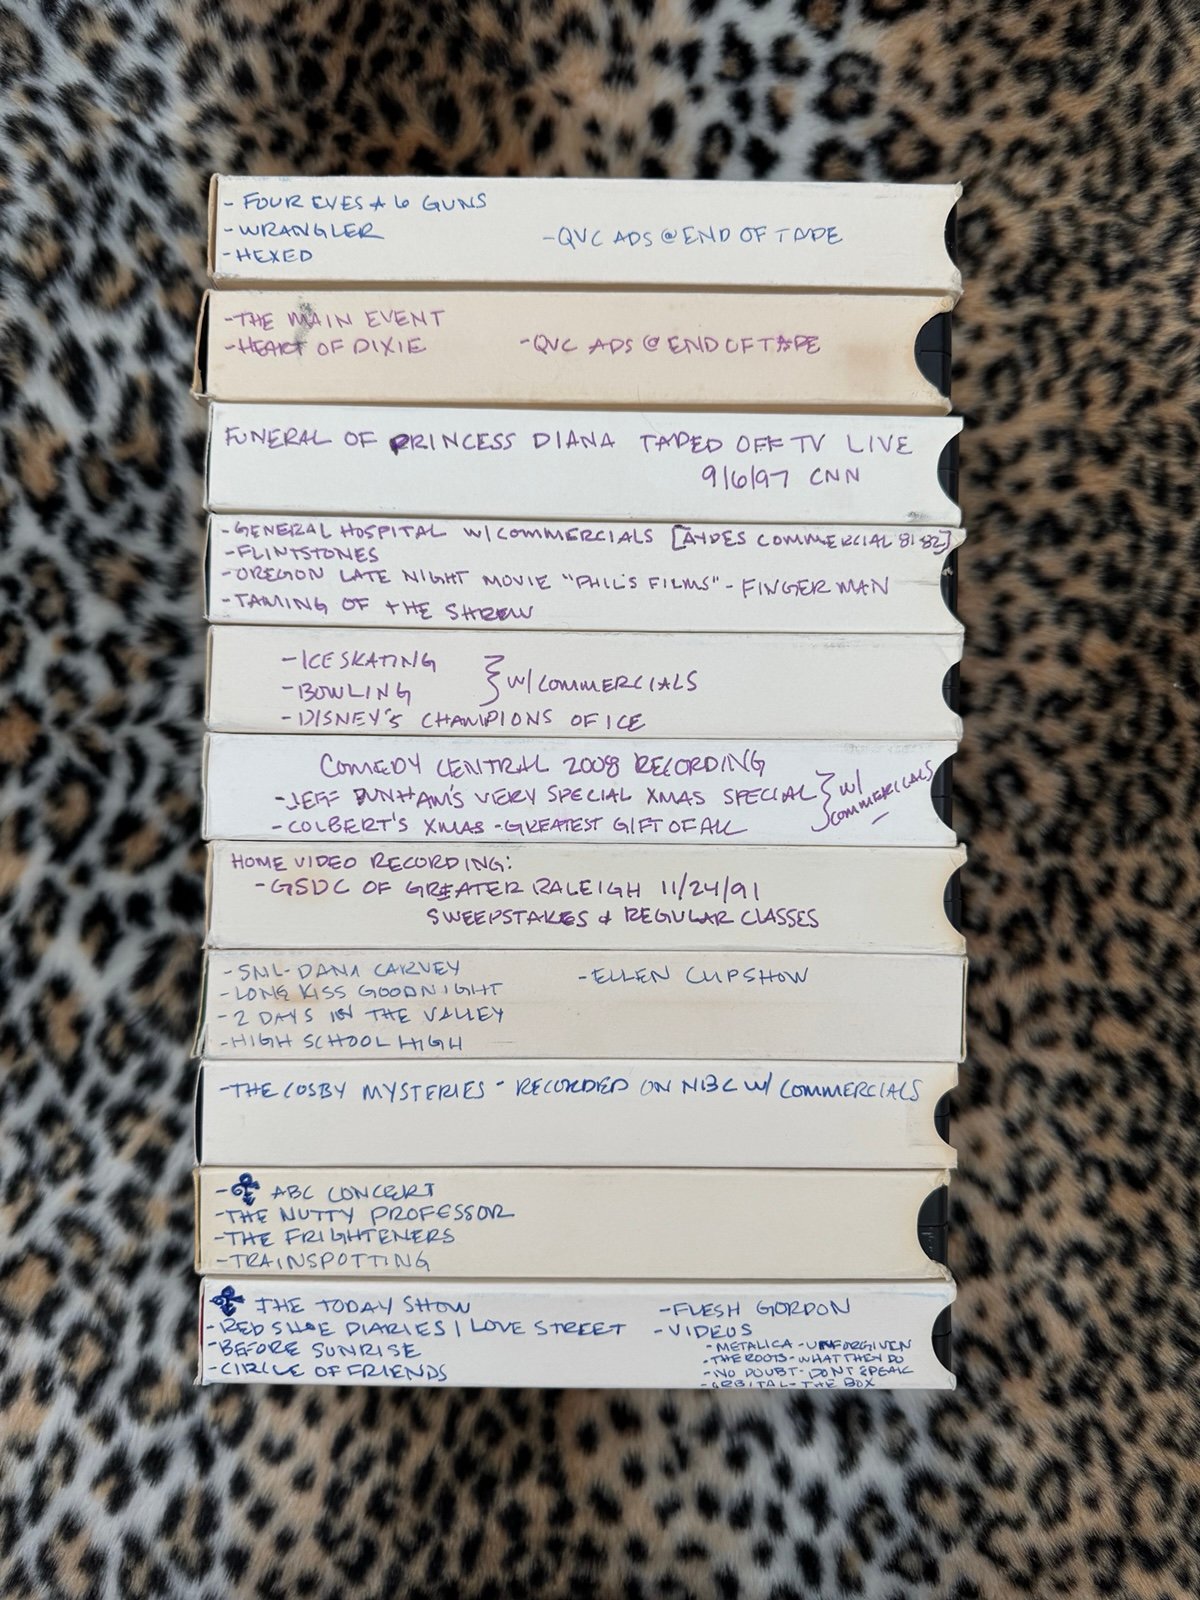 - FOUR EYES & 6 GUNS
- WRANGLER
- HEXED
- QVC ADS @ END OF TAPE
- THE MAIN EVENT
- HEART OF DIXIE
- QVC ADS @ END OF TAPE
FUNERAL OF PRINCESS DIANA TAPED OFF TV LIVE
9/6/97 CNN
- GENERAL HOSPITAL W/ COMMERCIALS [AYDES COMMERCIAL 81-82]
- FLINTSTONES
- OREGON LATE NIGHT MOVIE "PHIL'S FILMS" - FINGER MAN
- TAMING OF THE SHREW
- ICE SKATING
- BOWLING
} W/ COMMERCIALS
- DISNEY'S CHAMPIONS OF ICE
COMEDY CENTRAL 2008 RECORDING
- JEFF DUNHAM'S VERY SPECIAL XMAS SPECIAL
- COLBERT'S XMAS - GREATEST GIFT OF ALL
} W/ COMMERICALS
HOME VIDEO RECORDING:
- GSDC OF GREATER RALEIGH 11/24/91
SWEEPSTAKES & REGULAR CLASSES
- SNL - DANA CARVEY
- LONG KISS GOODNIGHT
- 2 DAYS IN THE VALLEY
- HIGH SCHOOL HIGH
- ELLEN CLIPSHOW
- THE COSBY MYSTERIES - RECORDED ON NBC W/ COMMERCIALS
- ABC CONCERT
- THE NUTTY PROFESSOR
- THE FRIGHTENERS
- TRAINSPOTTING
THE TODAY SHOW
- RED SHOE DIARIES | LOVE STREET
- BEFORE SUNRISE
- CIRCLE OF FRIENDS
- FLESH GORDON
- VIDEOS
- METALICA - UNFORGIVEN
- THE ROOTS - WHAT THEY DO
- NO DOUBT - DON'T SPEAK
- ORBITAL - THE BOX